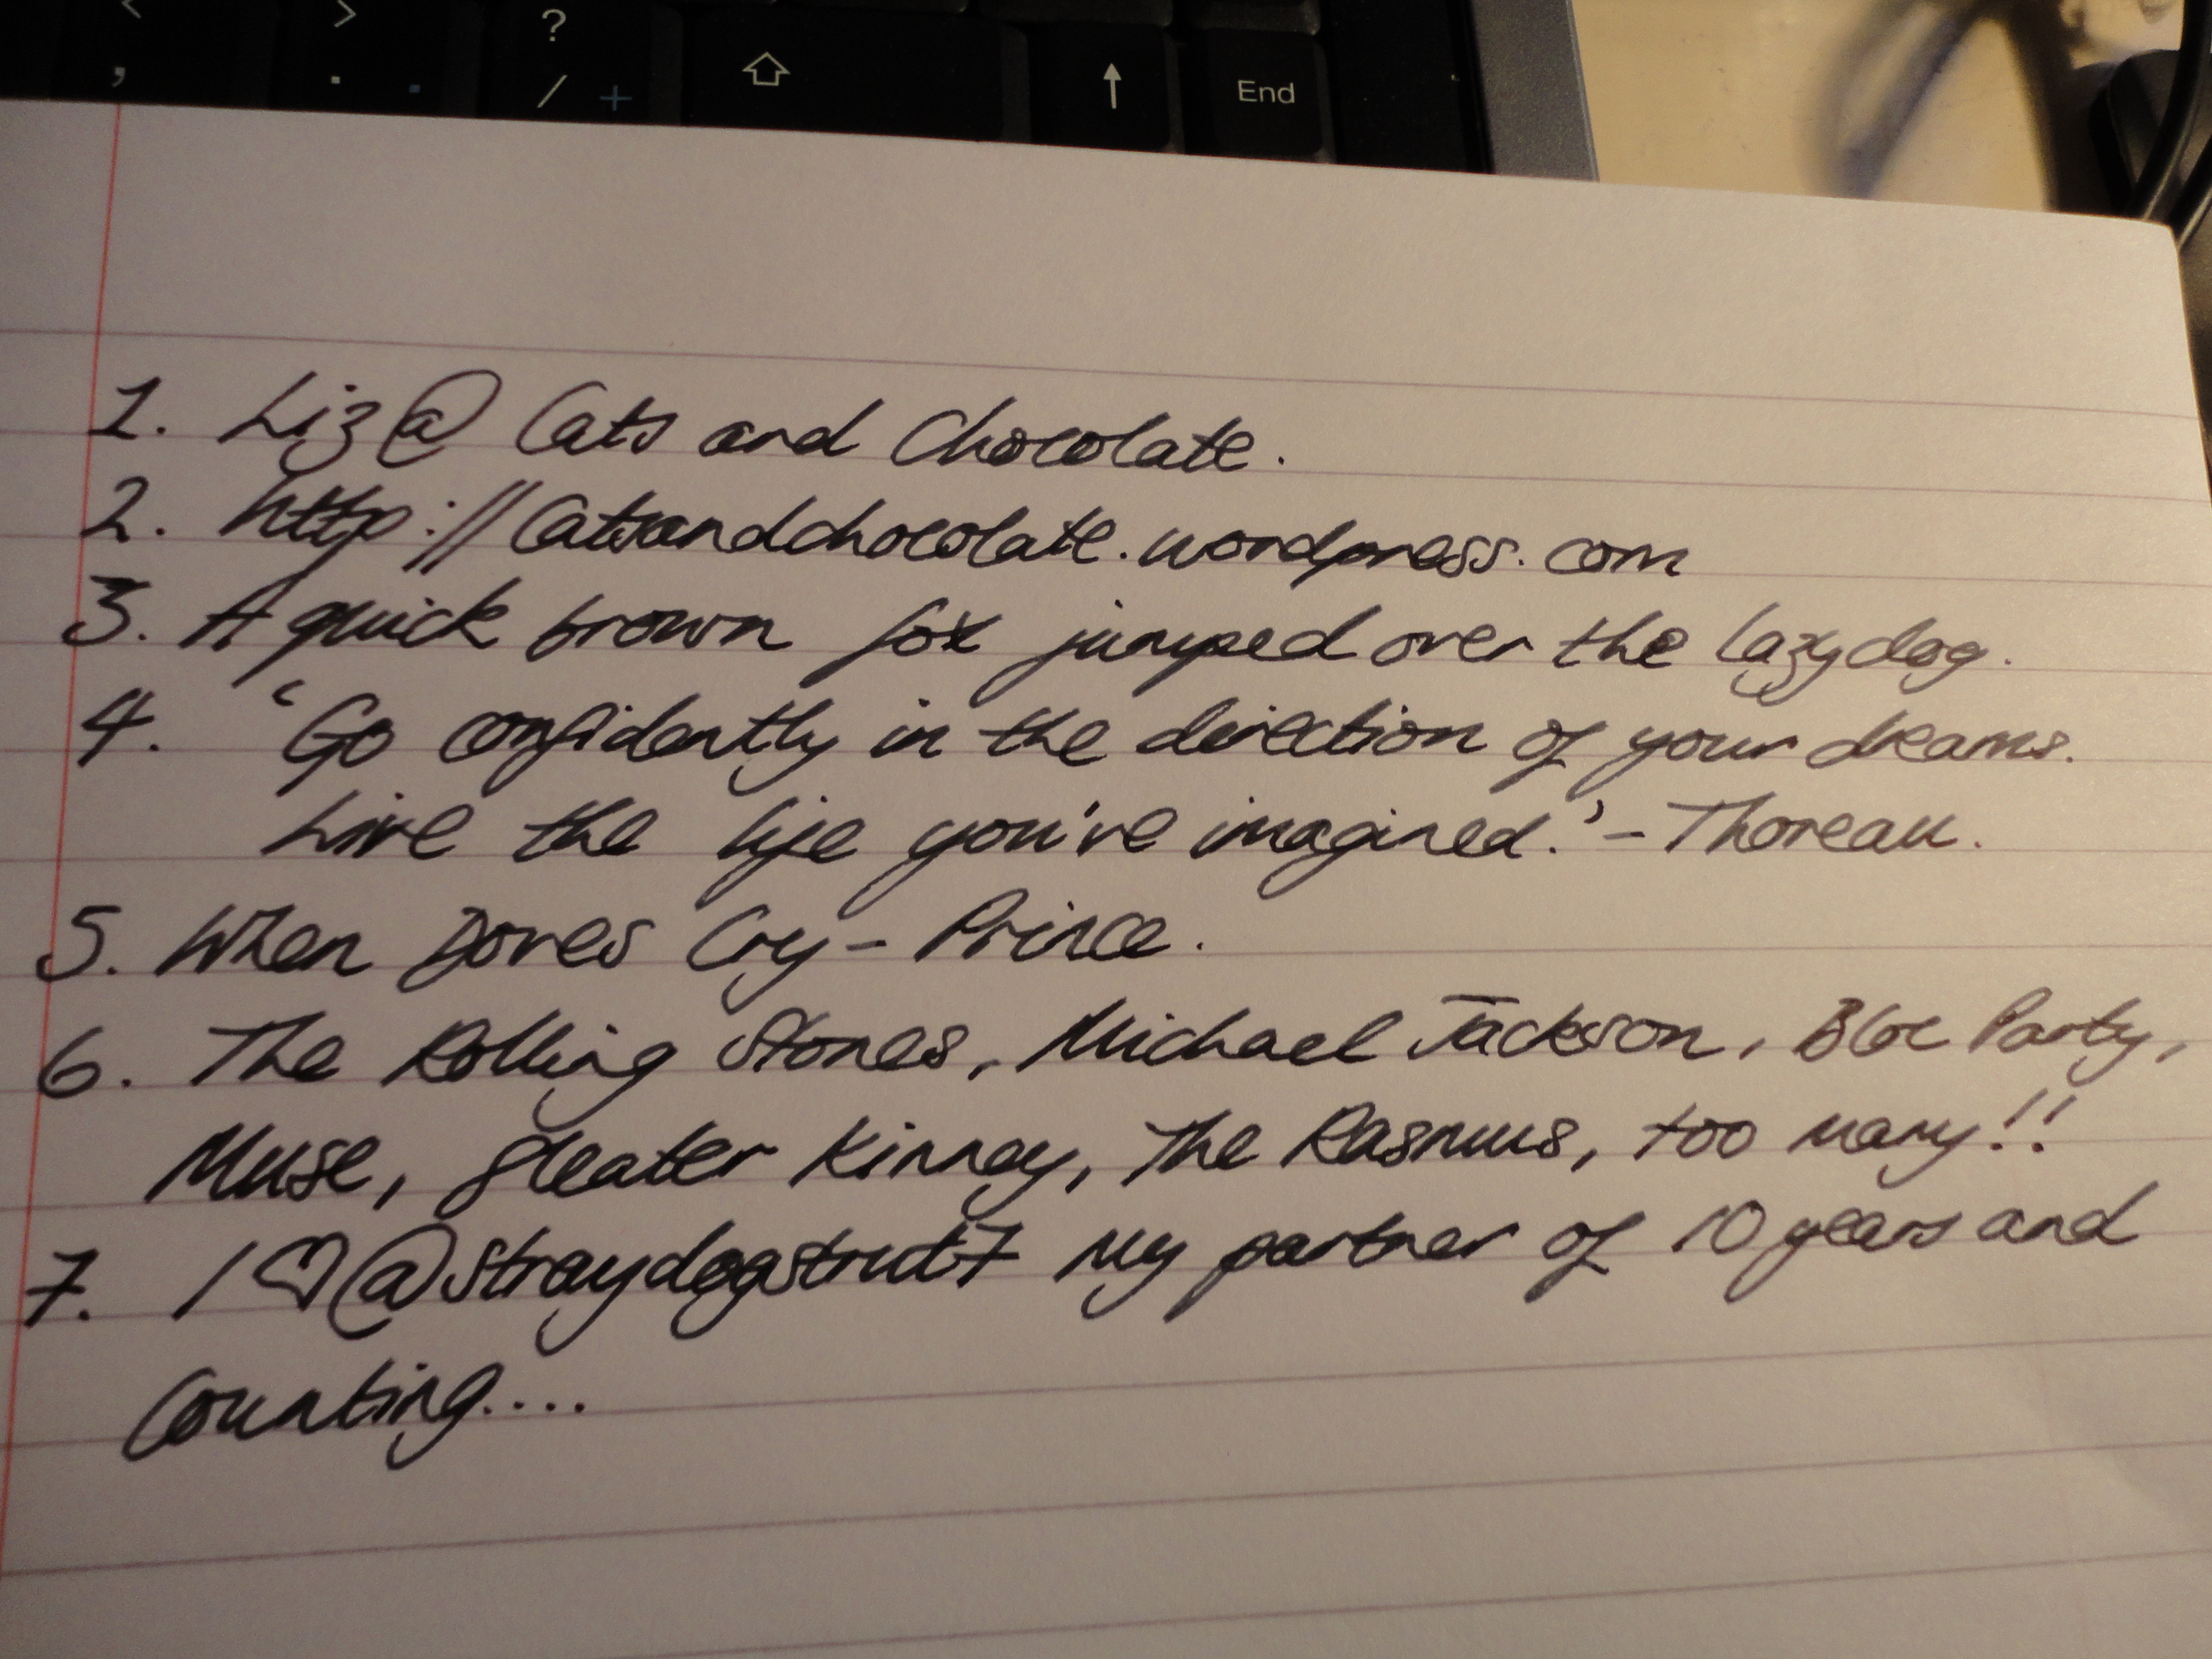 < > ?
, . . / + ↑ End
1. Liz@ Cats and Chocolate.
2. http://Catsandchocolate.wordpress.com
3. A quick brown fox jumped over the lazy dog.
4. 'Go confidently in the direction of your dreams.
Live the life you've imagined.' - Thoreau.
5. When Doves Cry - Prince.
6. The Rolling Stones, Michael Jackson, Bloc Party,
Muse, Sleater Kinney, The Rasmus, too many!!
7. I ♡ @straydogstrut7 my partner of 10 years and
Counting....